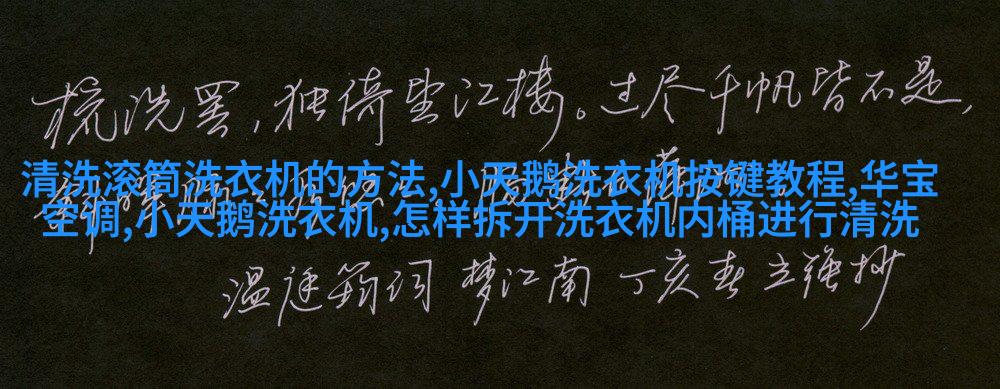 梳洗罢,独倚望江楼。过尽千帆皆不是,
清洗滚筒洗衣机的方法,小天鹅洗衣机按键教程,华宝
空调,小天鹅洗衣机,怎样拆开洗衣机内桶进行清洗
温庭筠词 梦江南 丁亥春 立强抄